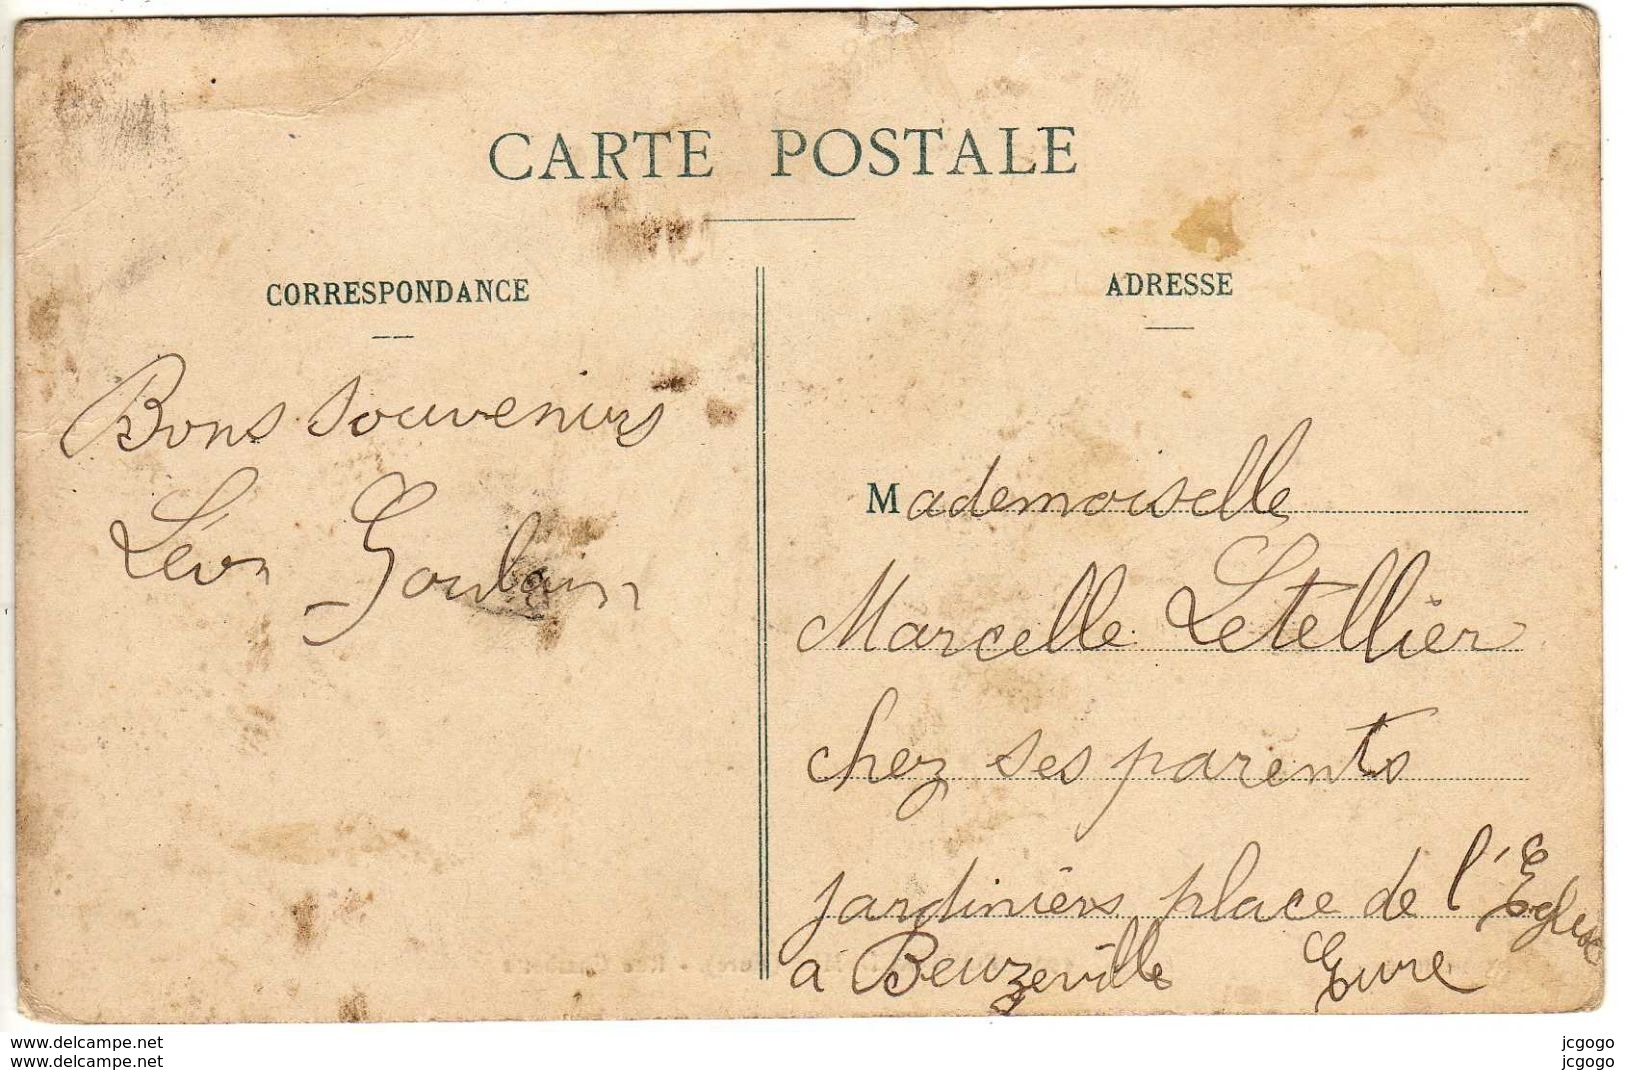 CARTE POSTALE
CORRESPONDANCE
Bons souvenirs
Léon Goulain
ADRESSE
Mademoiselle
Marcelle Letellier
chez ses parents
jardiniers place de l'Eglise
à Beuzeville Eure
www.delcampe.net
www.delcampe.net
jcgogo
jcgogo